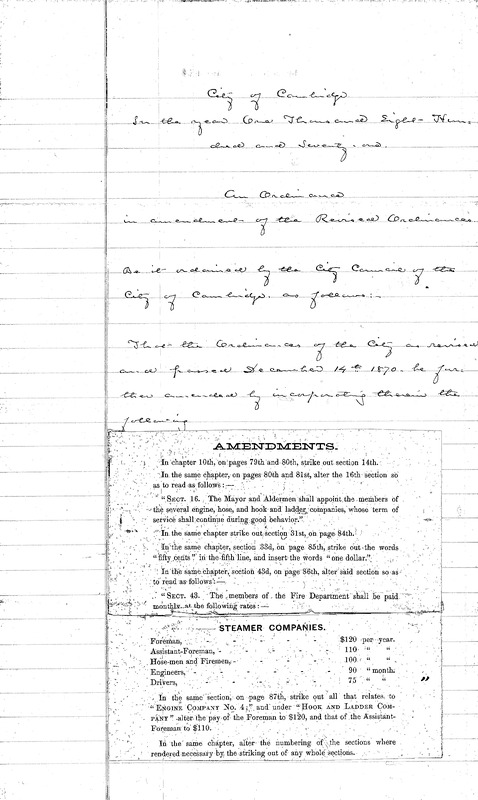 City of Cambridge
In the year One Thousand Eight Hun-
dred and Seventy-one.
An Ordinance
in amendment of the Revised Ordinances
Be it ordained by the City Council of the
City of Cambridge as follows:-
That the Ordinances of the City as revised
and passed December 14th 1870 be fur-
ther amended by incorporating therein the
following
AMENDMENTS.
In chapter 10th, on pages 79th and 80th, strike out section 14th.
In the same chapter, on pages 80th and 81st, alter the 16th section so
as to read as follows: —
"SECT. 16. The Mayor and Aldermen shall appoint the members of
the several engine, hose, and hook and ladder companies, whose term of
service shall continue during good behavior."
In the same chapter strike out section 31st, on page 84th.
In the same chapter, section 33d, on page 85th, strike out the words
"fifty cents" in the fifth line, and insert the words "one dollar."
In the same chapter, section 43d, on page 86th, alter said section so as
to read as follows: —
"SECT. 43. The members of the Fire Department shall be paid
monthly at the following rates: —
STEAMER COMPANIES.
Foreman, - - - - - $120 per year.
Assistant-Foreman, - - - - - 110 " "
Hose-men and Firemen, - - - - - 100 " "
Engineers, - - - - - 90 " month.
Drivers, - - - - - 75 " " "
In the same section, on page 87th, strike out all that relates to
"ENGINE COMPANY NO. 4;" and under "HOOK AND LADDER COM-
PANY" alter the pay of the Foreman to $120, and that of the Assistant-
Foreman to $110.
In the same chapter, alter the numbering of the sections where
rendered necessary by the striking out of any whole sections.